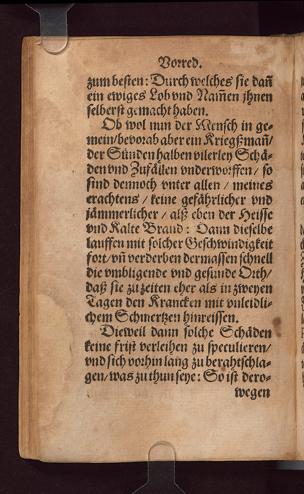 Vorred.
zum besten: Durch welches sie dañ
ein ewiges Lob vnd Nam̃en jhnen
selberst gemacht haben.
Ob wol nun der Mensch in ge-
mein/bevorab aber ein Kriegßmañ/
der Sünden halben vilerley Schä-
den vnd Zufällen vnderworffen/ so
sind dennoch vnter allen / meines
erachtens / keine gefährlicher vnd
jämmerlicher / alß eben der Heisse
vnd Kalte Brand: Dann dieselbe
lauffen mit solcher Geschwindigkeit
fort/ vñ verderben dermassen schnell
die vmbligende vnd gesunde Orth/
daß sie zu zeiten eher als in zweyen
Tagen den Krancken mit vnleidli-
chem Schmertzen hinreissen.
Dieweil dann solche Schäden
keine frist verleihen zu speculieren/
vnd sich vorhin lang zu berahtschla-
gen/was zu thun seye: So ist dero-
wegen